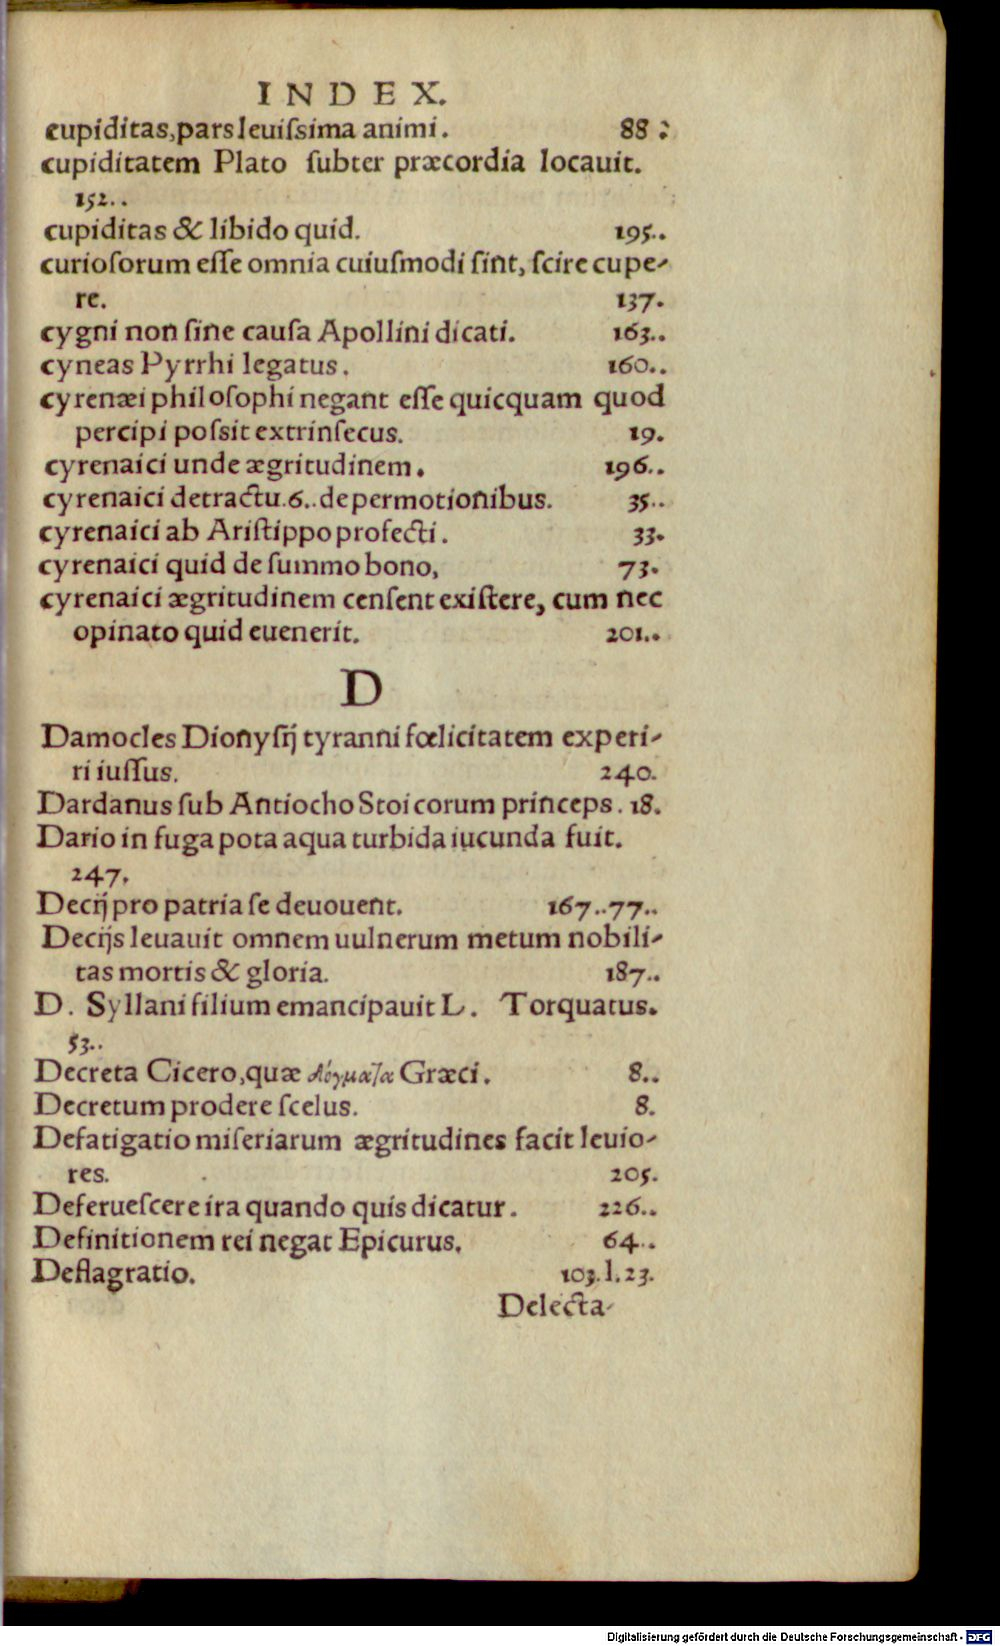 INDEX.
cupiditas, pars leuiſsima animi. 88 :
cupiditatem Plato ſubter præcordia locauit.
152..
cupiditas & libido quid. 195..
curioſorum eſſe omnia cuiuſmodi ſint, ſcire cupe-
re. 137.
cygni non ſine cauſa Apollini dicati. 163..
cyneas Pyrrhi legatus. 160..
cyrenæi philoſophi negant eſſe quicquam quod
percipi poſsit extrinſecus. 19.
cyrenaici unde ægritudinem. 196..
cyrenaici de tractu.6..de permotionibus. 35..
cyrenaici ab Ariſtippo profecti. 33.
cyrenaici quid de ſummo bono, 73.
cyrenaici ægritudinem cenſent exiſtere, cum nec
opinato quid euenerit. 201..
D
Damocles Dionyſij tyranni fœlicitatem experi-
ri iuſſus. 240.
Dardanus ſub Antiocho Stoicorum princeps. 18.
Dario in fuga pota aqua turbida iucunda fuit.
247.
Decij pro patria ſe deuouent. 167..77..
Decijs leuauit omnem uulnerum metum nobili-
tas mortis & gloria. 187..
D. Syllani filium emancipauit L. Torquatus.
53..
Decreta Cicero, quæ δόγματα Græci. 8..
Decretum prodere ſcelus. 8.
Defatigatio miſeriarum ægritudines facit leuio-
res. 205.
Deferueſcere ira quando quis dicatur. 226..
Definitionem rei negat Epicurus. 64..
Deflagratio. 103.l.23.
Delecta-
Digitalisierung gefördert durch die Deutsche Forschungsgemeinschaft - DFG